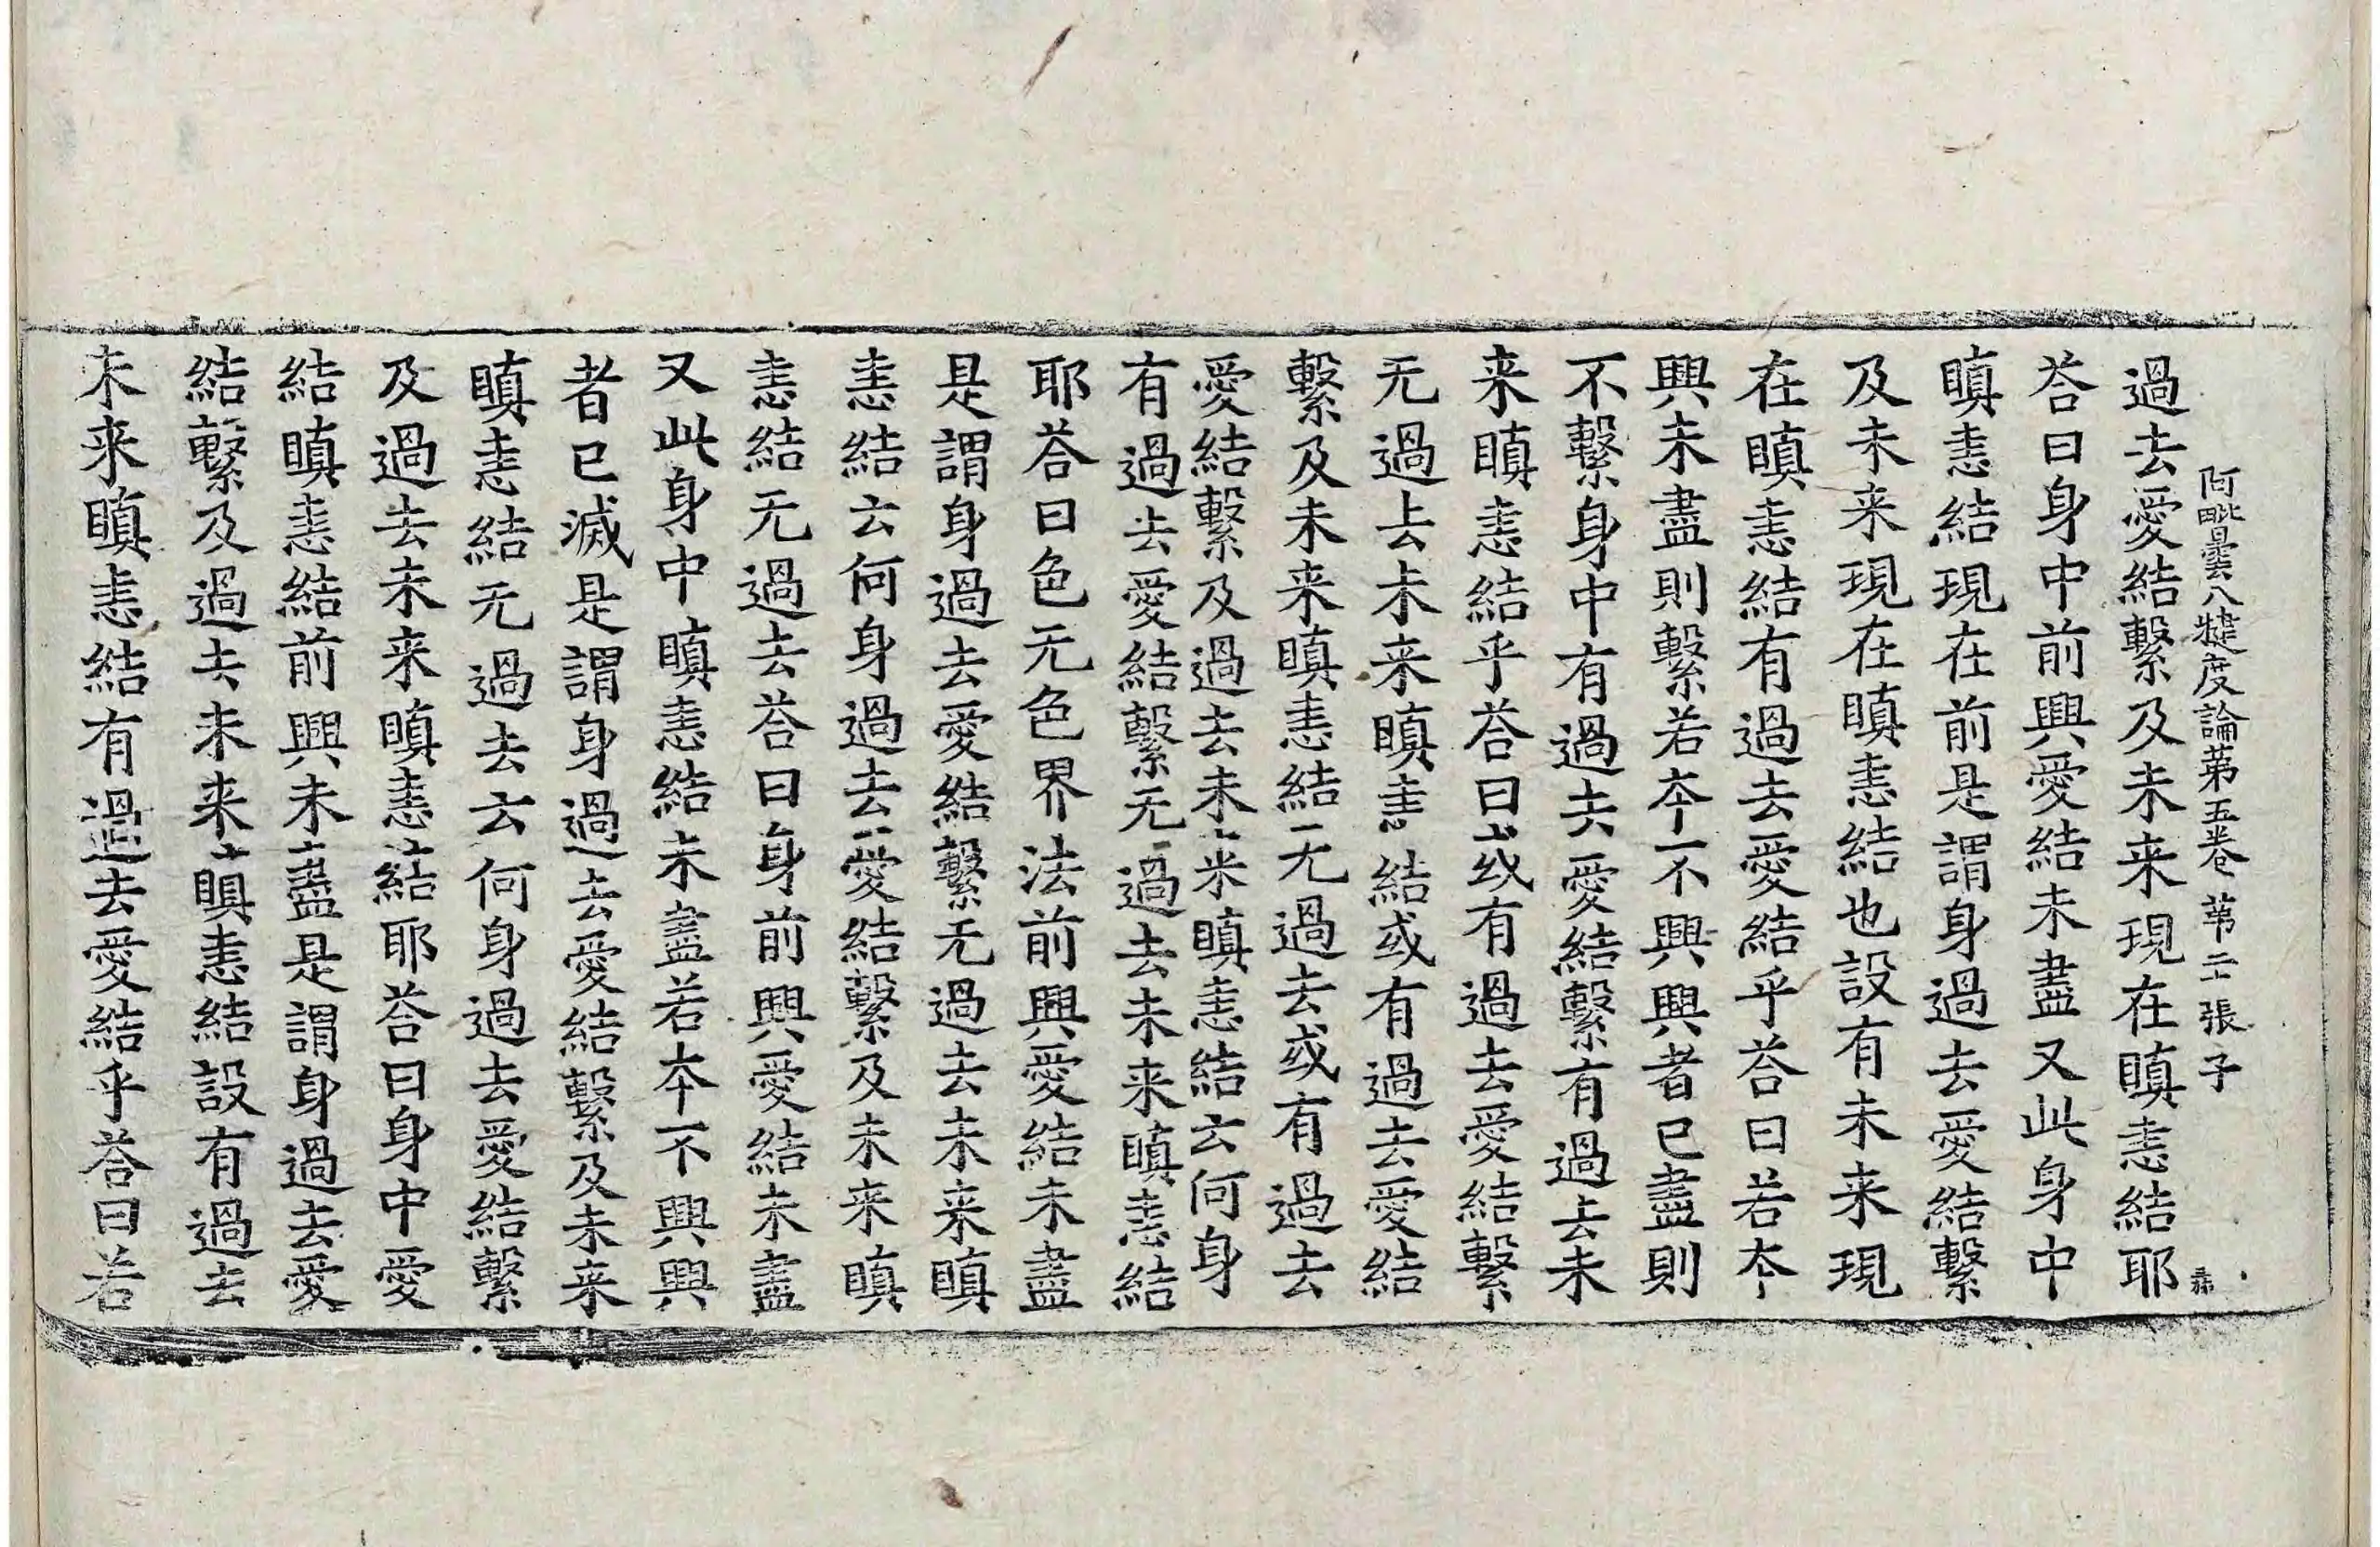 阿毗曇八犍度論第五卷　第二十張　子
過去愛結繫及未来現在瞋恚結耶
荅曰身中前興愛結未盡又此身中
瞋恚結現在前是謂身過去愛結繫
及未来現在瞋恚結也設有未来現
在瞋恚結有過去愛結乎荅曰若夲
興未盡則繫若夲不興興者已盡則
不繫身中有過去愛結繫有過去未
来瞋恚結乎荅曰或有過去愛結繫
无過去未来瞋恚結或有過去愛結
繫及未来瞋恚結无過去或有過去
愛結繫及過去未来瞋恚結云何身
有過去愛結繫无過去未来瞋恚結
耶荅曰色无色界法前興愛結未盡
是謂身過去愛結繫无過去未来瞋
恚結云何身過去愛結繫及未来瞋
恚結无過去荅曰身前興愛結未盡
又此身中瞋恚結未盡若夲不興興
者已滅是謂身過去愛結繫及未来
瞋恚結无過去云何身過去愛結繫
及過去未来瞋恚結耶荅曰身中愛
結瞋恚結前興未盡是謂身過去愛
結繫及過去未来瞋恚結設有過去
未来瞋恚結有過去愛結乎荅曰若